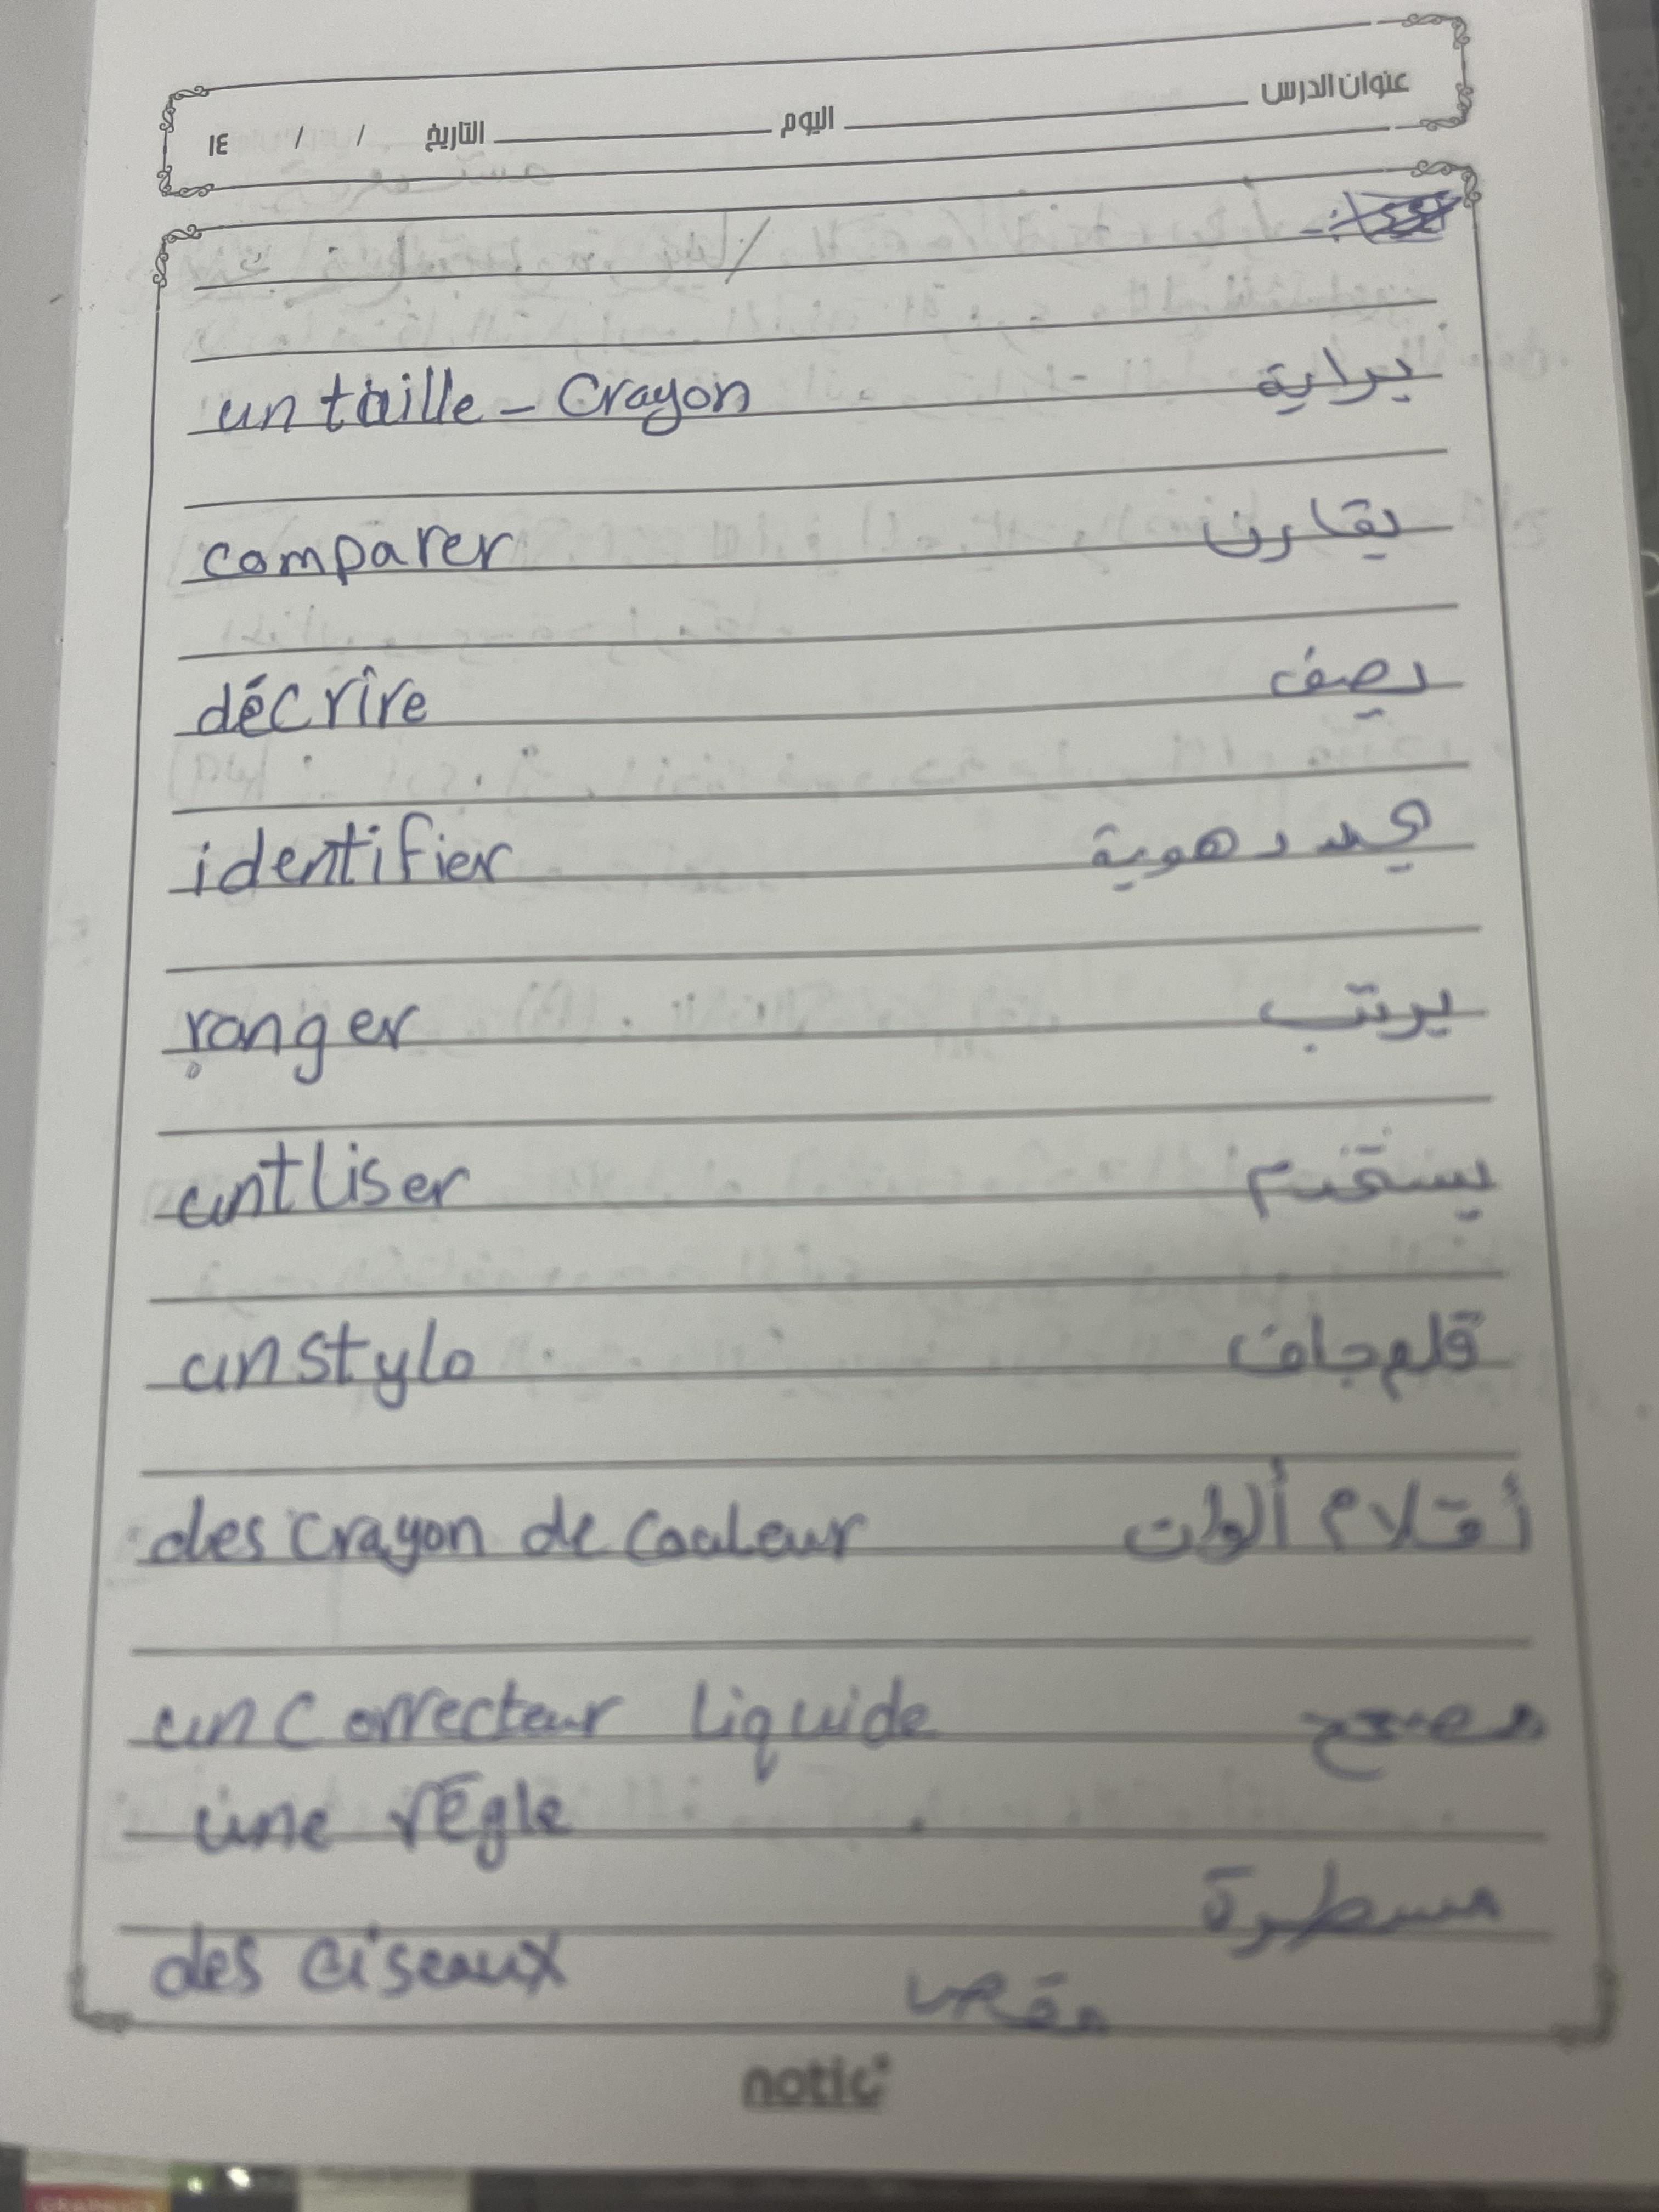 عنوان الدرس اليوم التاريخ / / ١٤
un taille - Crayon برایة
comparer يقارن
décrire يصف
identifier يحدد هوية
ranger يرتب
untliser يستخدم
un stylo قلم جاف
des crayon de couleur أقلام ألوان
un correcteur liquide مصحح
une régle
مسطرة
des ciseaux مقص
notic